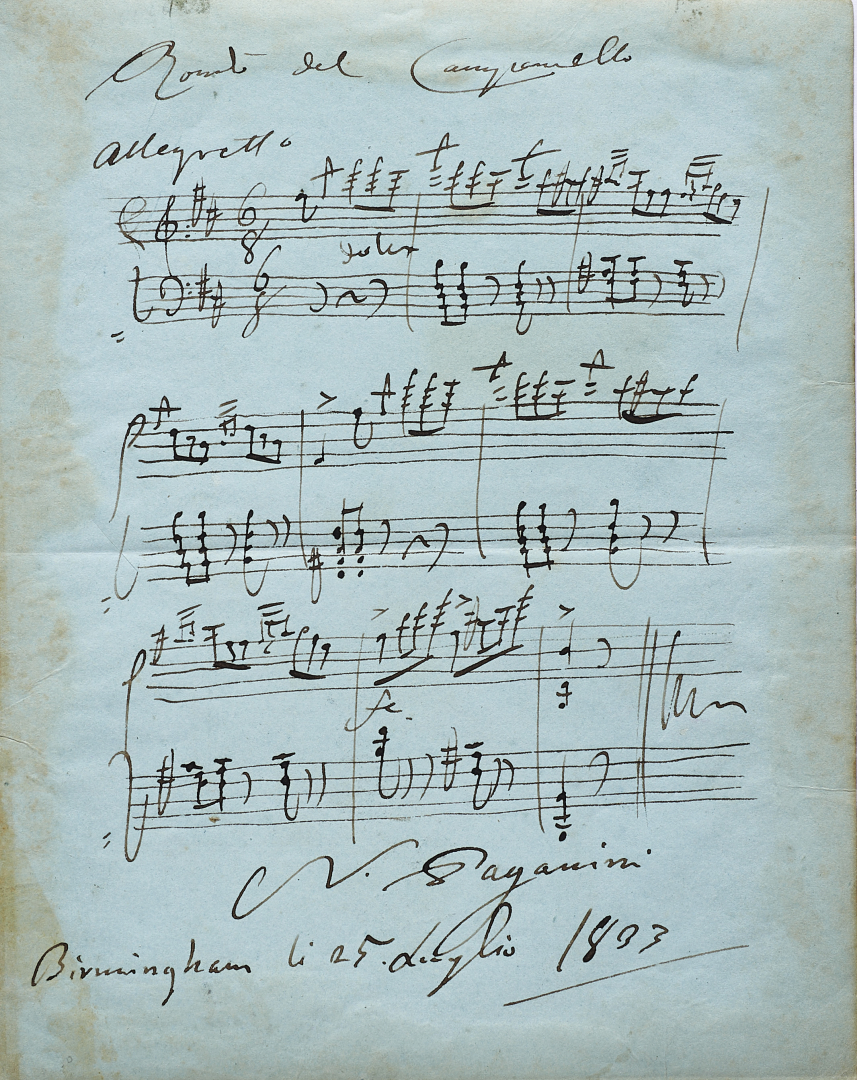 Rondò del Campanello
Allegretto
6
8
dolce
6
8
N. Paganini
Birmingham li 25. Luglio 1833